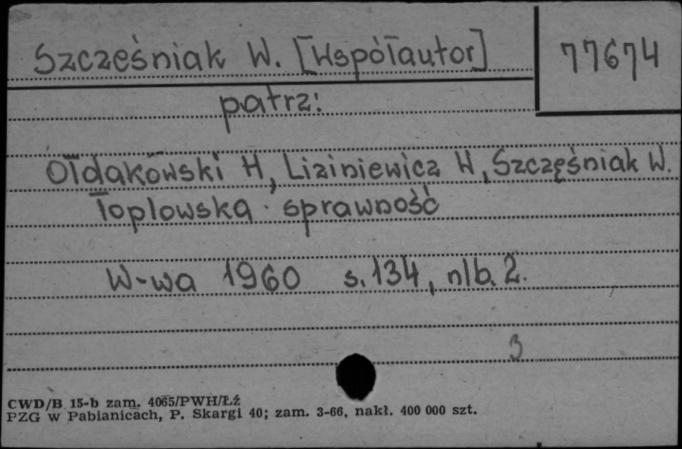 Szcześniak W. [Współautor]
77674
patrz:
Ołdakowski H, Liziniewicz W, Szczęśniak W.
Toplowska sprawność
W-wa 1960 s. 134, nlb. 2.
3
CWD/B 15-b zam. 4065/PWH/Łź
PZG w Pabianicach, P. Skargi 40; zam. 3-66, nakł. 400 000 szt.